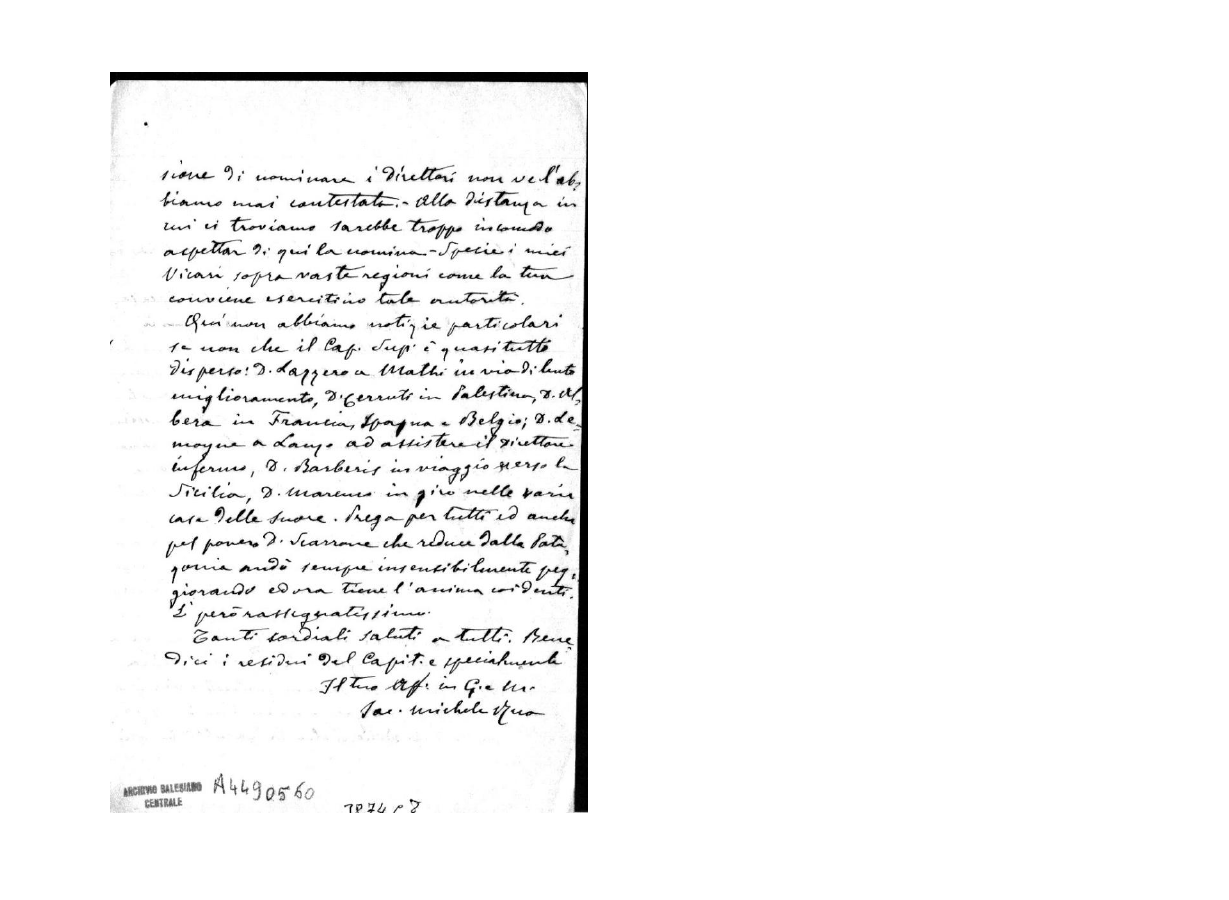 sione di nominare i Direttori non ve l'ab,
biamo mai contestata.- Alla distanza in
cui ci troviamo sarebbe troppo incomodo
aspettar di qui la nomina - Specie i miei
Vicari sopra vaste regioni come la tua
conviene esercitino tale autorità.
Qui non abbiamo notizie particolari
se non che il Cap. Sup. è quasi tutto
disperso: D. Lazzero a Mathi in via di lento
miglioramento, D. Cerruti in Palestina, D. Al,
bera in Francia, Spagna e Belgio; D. Le-
moyne a Lanzo ad assistere il Direttore
infermo, D. Barberis in viaggio verso la
Sicilia, D. Marenco in giro nelle varie
case delle suore. Prega per tutti ed anche
pel povero D. Scarrone che reduce dalla Pata,
gonia andò sempre insensibilmente peg,
giorando ed ora tiene l'anima coi denti.
È però rassegnatissimo.
Tanti cordiali saluti a tutti. Bene
dici i residui del Capit. e specialmente
Il tuo Aff. in G. e M.
Sac. Michele Rua
ARCHIVIO SALESIANO
CENTRALE
A4490560